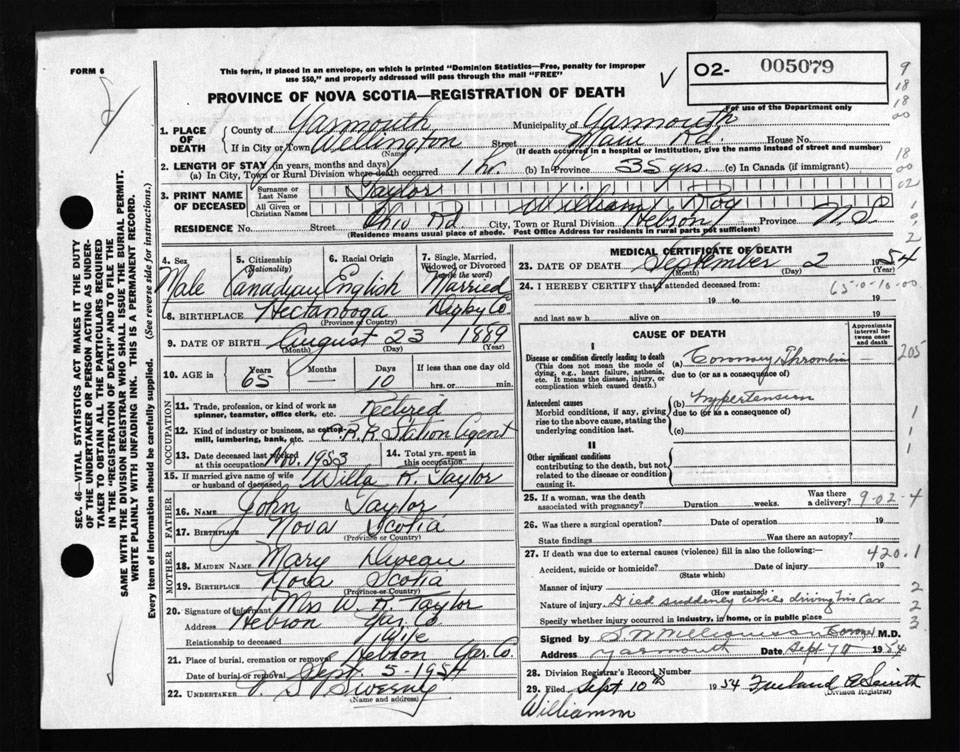 FORM 6
This form, if placed in an envelope, on which is printed "Dominion Statistics—Free, penalty for improper
use $50," and properly addressed will pass through the mail "FREE"
PROVINCE OF NOVA SCOTIA—REGISTRATION OF DEATH
O2- 005079
For use of the Department only
1. PLACE OF DEATH
County of Yarmouth Municipality of Yarmouth
If in City or Town Wellington (Name) Street Main Rd. House No.
(If death occurred in a hospital or institution, give the name instead of street and number)
2. LENGTH OF STAY (in years, months and days)
(a) In City, Town or Rural Division where death occurred 1 hr. (b) In Province 35 yrs. (c) In Canada (if immigrant)
3. PRINT NAME OF DECEASED
Surname or Last Name Taylor
All Given or Christian Names William Roy
RESIDENCE No. Street Ohio Rd City, Town or Rural Division Hebron Province N.S.
(Residence means usual place of abode. Post Office Address for residents in rural parts not sufficient)
4. Sex Male
5. Citizenship (Nationality) Canadian
6. Racial Origin English
7. Single, Married, Widowed or Divorced (write the word) Married
8. BIRTHPLACE Hectanooga Digby Co.
(Province or Country)
9. DATE OF BIRTH August 23 1889
(Month) (Day) (Year)
10. AGE in Years 65 Months — Days 10 If less than one day old
hrs. or min.
OCCUPATION
11. Trade, profession, or kind of work as
spinner, teamster, office clerk, etc. Retired
12. Kind of industry or business, as cotton-
mill, lumbering, bank, etc. C.P.R Station Agent
13. Date deceased last worked
at this occupation Nov. 1953
14. Total yrs. spent in
this occupation
15. If married give name of wife
or husband of deceased Willa R. Taylor
FATHER
16. Name John Taylor
17. Birthplace Nova Scotia
(Province or Country)
MOTHER
18. MAIDEN NAME Mary Deveau
19. BIRTHPLACE Nova Scotia
(Province or Country)
20. Signature of informant Mrs W. R. Taylor
Address Hebron Yar. Co.
Relationship to deceased Wife
21. Place of burial, cremation or removal Hebron Yar. Co.
Date of burial or removal Sept. 5 - 1954
22. UNDERTAKER V. S. Sweeny
(Name and address)
MEDICAL CERTIFICATE OF DEATH
23. DATE OF DEATH September 2 1954
(Month) (Day) (Year)
24. I HEREBY CERTIFY that I attended deceased from: 65-0-10-00
19 to 19
and last saw h alive on 19
CAUSE OF DEATH
Approximate interval between onset and death
I
Disease or condition directly leading to death
(This does not mean the mode of
dying, e.g., heart failure, asthenia,
etc. It means the disease, injury, or
complication which caused death.)
(a) Coronary Thrombosis — 205
due to (or as a consequence of)
Antecedent causes
Morbid conditions, if any, giving
rise to the above cause, stating the
underlying condition last.
(b) hypertension
due to (or as a consequence of)
(c)
II
Other significant conditions
contributing to the death, but not
related to the disease or condition
causing it.
25. If a woman, was the death
associated with pregnancy? Duration weeks. Was there
a delivery? 9-02-4
26. Was there a surgical operation? Date of operation 19
State findings Was there an autopsy?
27. If death was due to external causes (violence) fill in also the following:— 420.1
Accident, suicide or homicide? Date of injury 19
(State which)
Manner of injury
(How sustained)
Nature of injury Died suddenly while driving his car
Specify whether injury occurred in industry, in home, or in public place
Signed by Coroner M.D.
Address Yarmouth Date Sept 7th 1954
28. Division Registrar's Record Number
29. Filed Sept 10th 1954 Smith
(Division Registrar)
SEC. 46—VITAL STATISTICS ACT MAKES IT THE DUTY
OF THE UNDERTAKER OR PERSON ACTING AS UNDER-
TAKER TO OBTAIN ALL THE PARTICULARS REQUIRED
IN THE "REGISTRATION OF DEATH" AND TO FILE THE
SAME WITH THE DIVISION REGISTRAR WHO SHALL ISSUE THE BURIAL PERMIT.
WRITE PLAINLY WITH UNFADING INK. THIS IS A PERMANENT RECORD.
Every item of information should be carefully supplied. (See reverse side for instructions.)